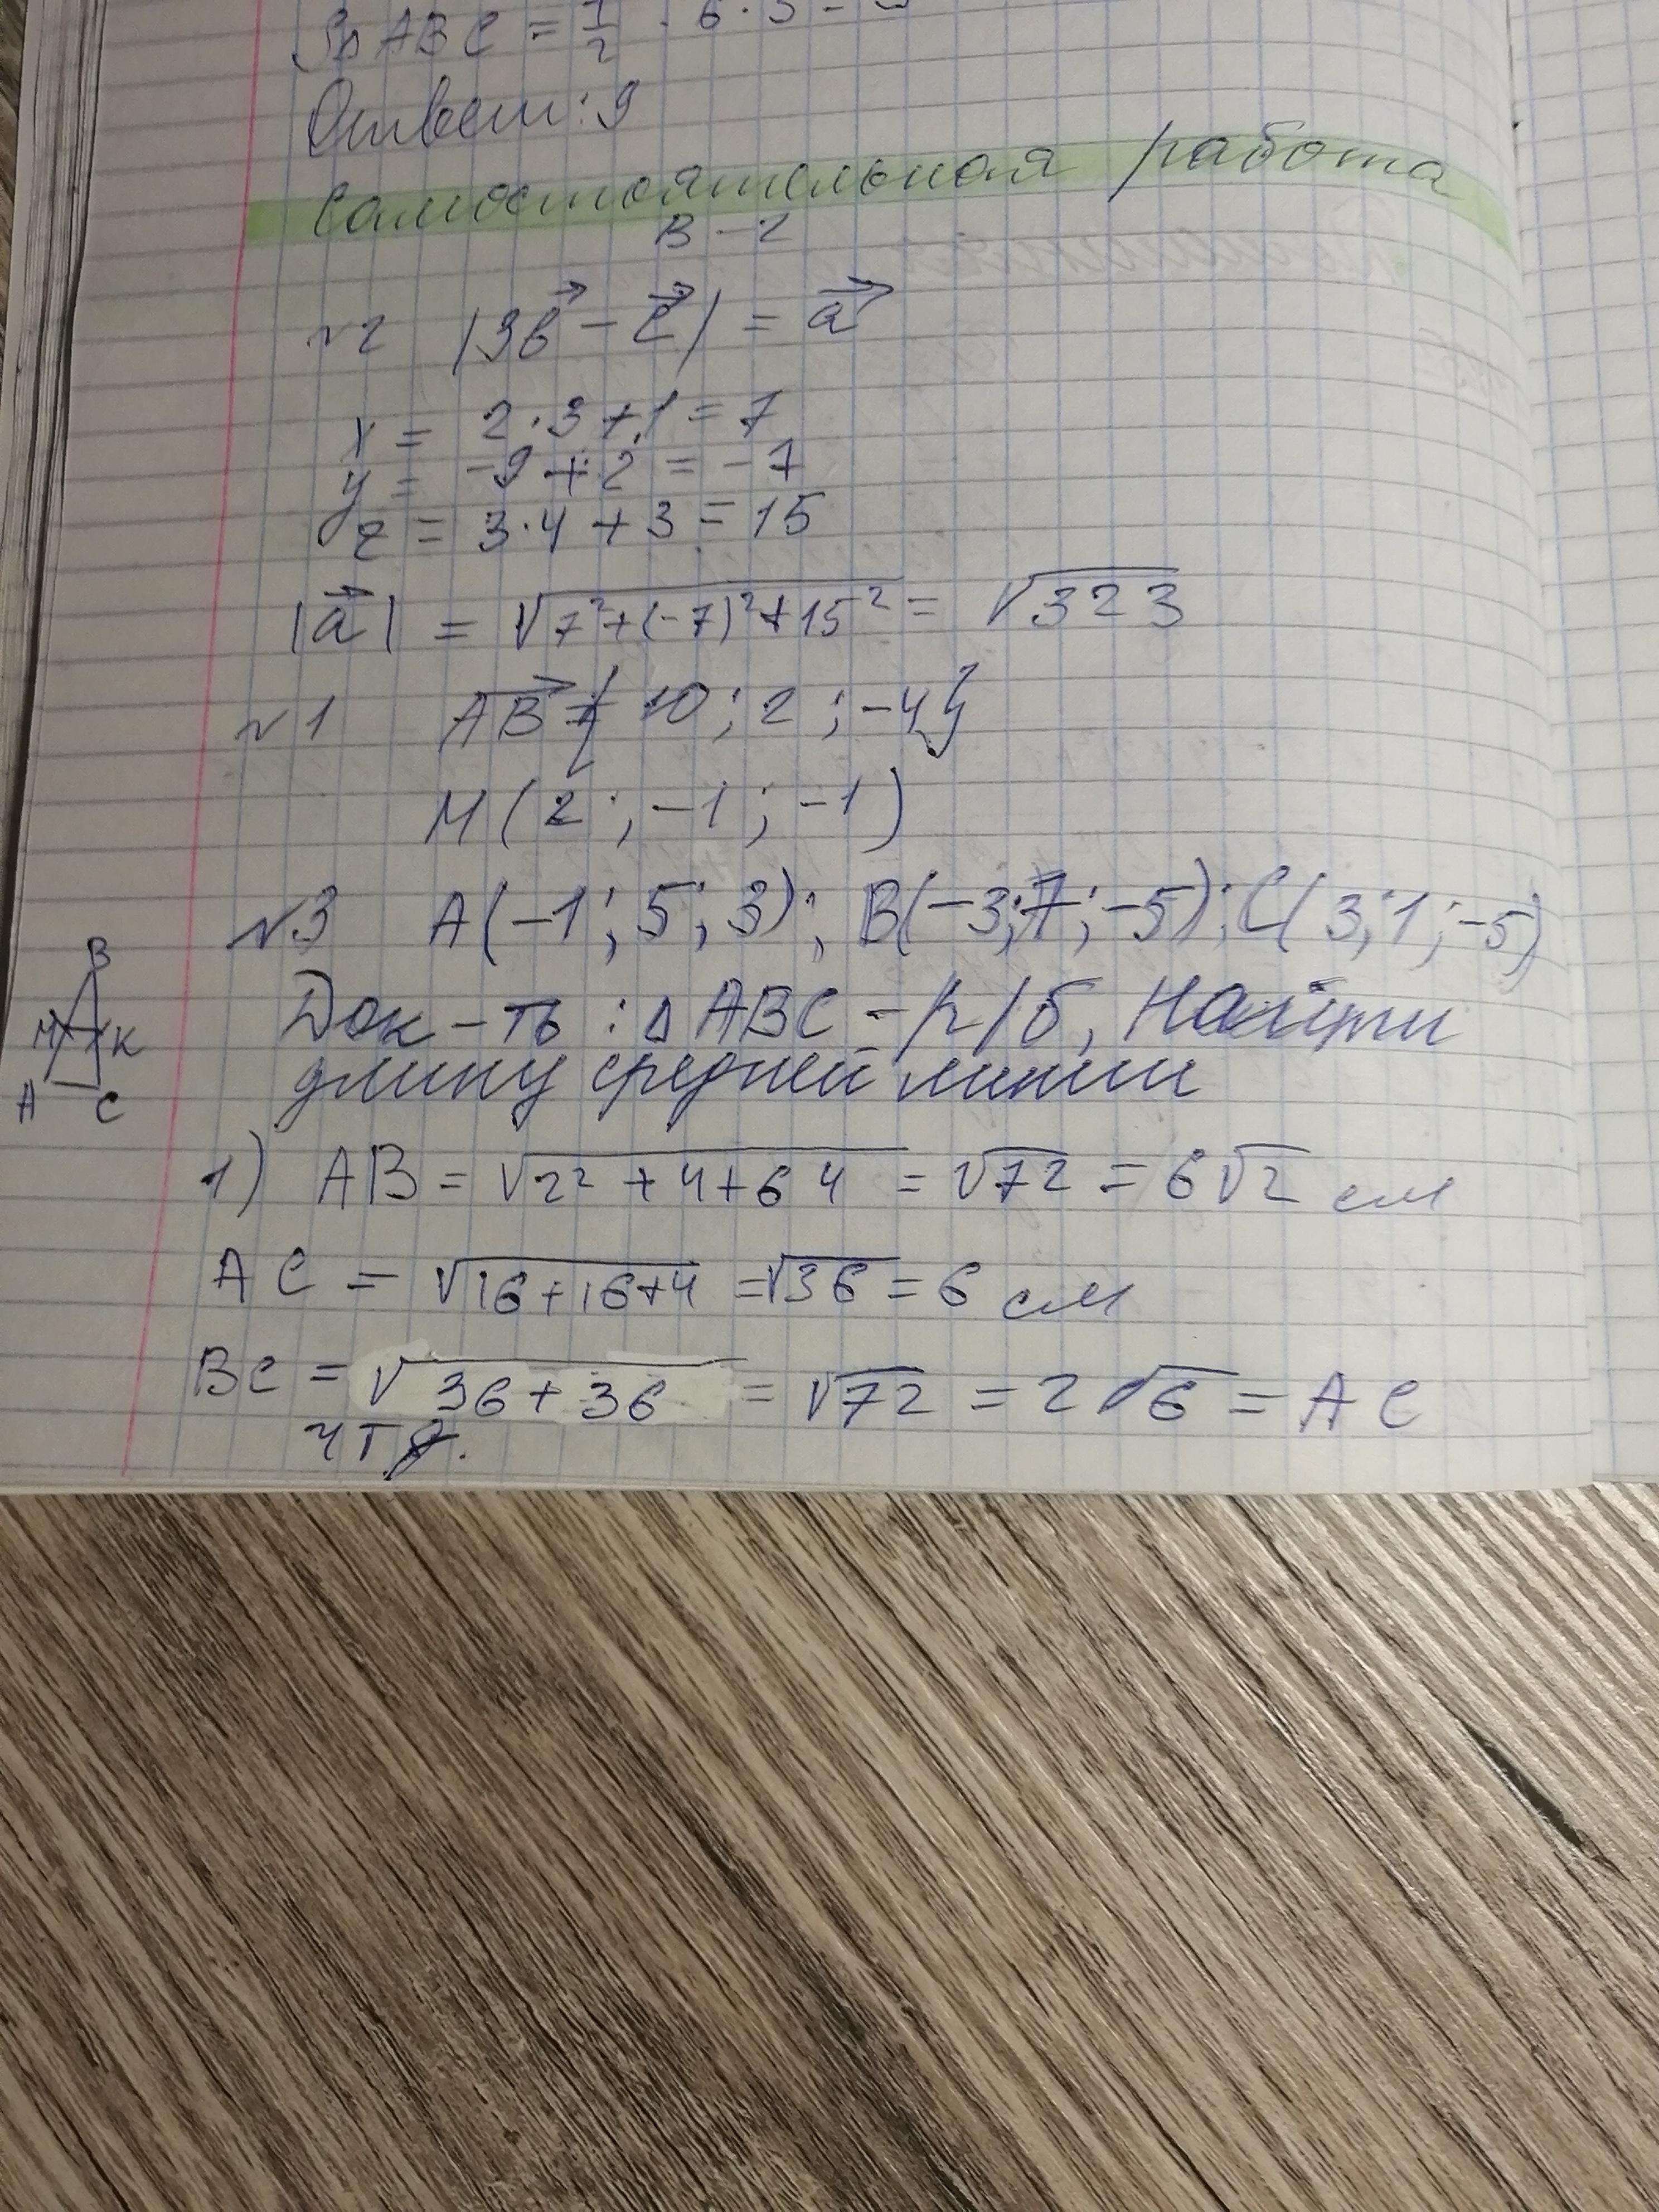 S△ABC = 1/2 · 6 · 3 =
Ответ: 9
Самостоятельная работа
В – 2
№2 |3b⃗ – c⃗| = a⃗
x = 2·3+1 = 7
y = -9+2 = -7
z = 3·4+3 = 15
|a⃗| = √7²+(-7)²+15² = √323
№1 AB⃗ = { 10 ; 2 ; -4}
M ( 2 ; -1 ; -1 )
№3 A(-1 ; 5 ; 3) ; B(-3;7 ; -5) ; C( 3;1 ; -5)
B
M K
A C
Док-ть : △ ABC – р/б, Найти
длину средней линии
1) AB = √2² + 4+64 = √72 = 6√2 см
AC = √16+16+4 = √36 = 6 см
BC = √36+36 = √72 = 2√6 = AC
чтд.